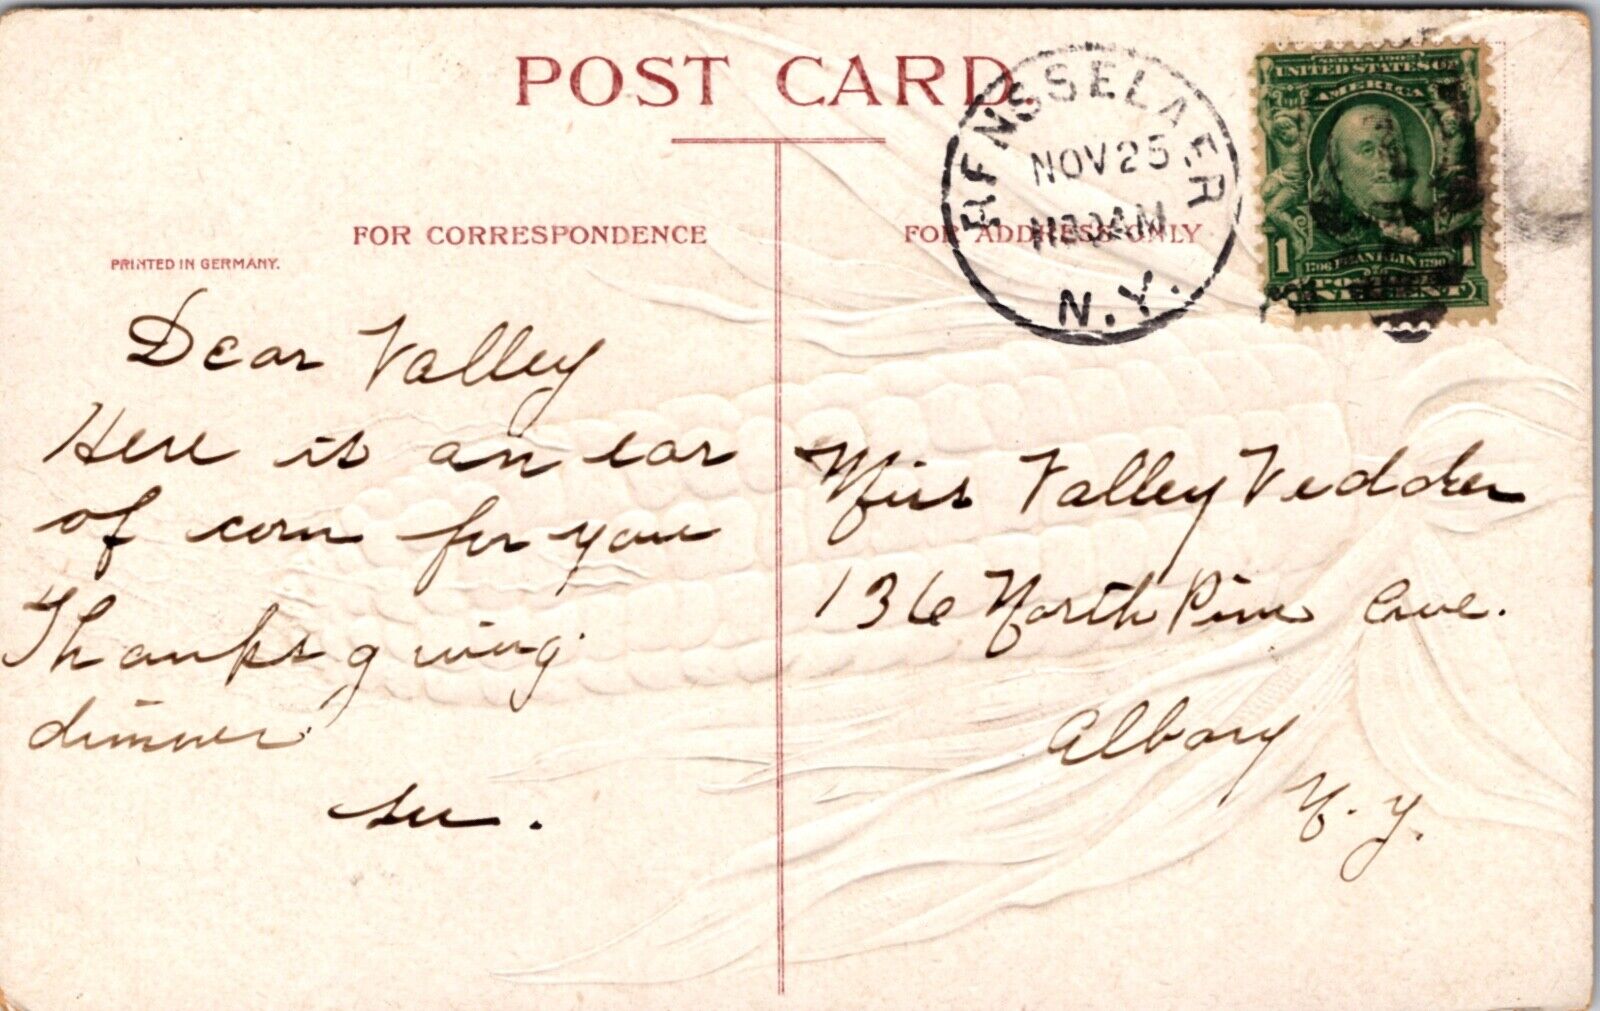 POST CARD
FOR CORRESPONDENCE
PRINTED IN GERMANY.
Dear Valley
Here is an ear
of corn for your
Thanksgiving
dinner
FOR ADDRESS ONLY
RENSSELAER
NOV 25
AM
N.Y.
UNITED STATES
AMERICA
1
1
1706 FRANKLIN 1790
Miss Valley Vedder
136 North Pine Ave.
Albany
N.Y.